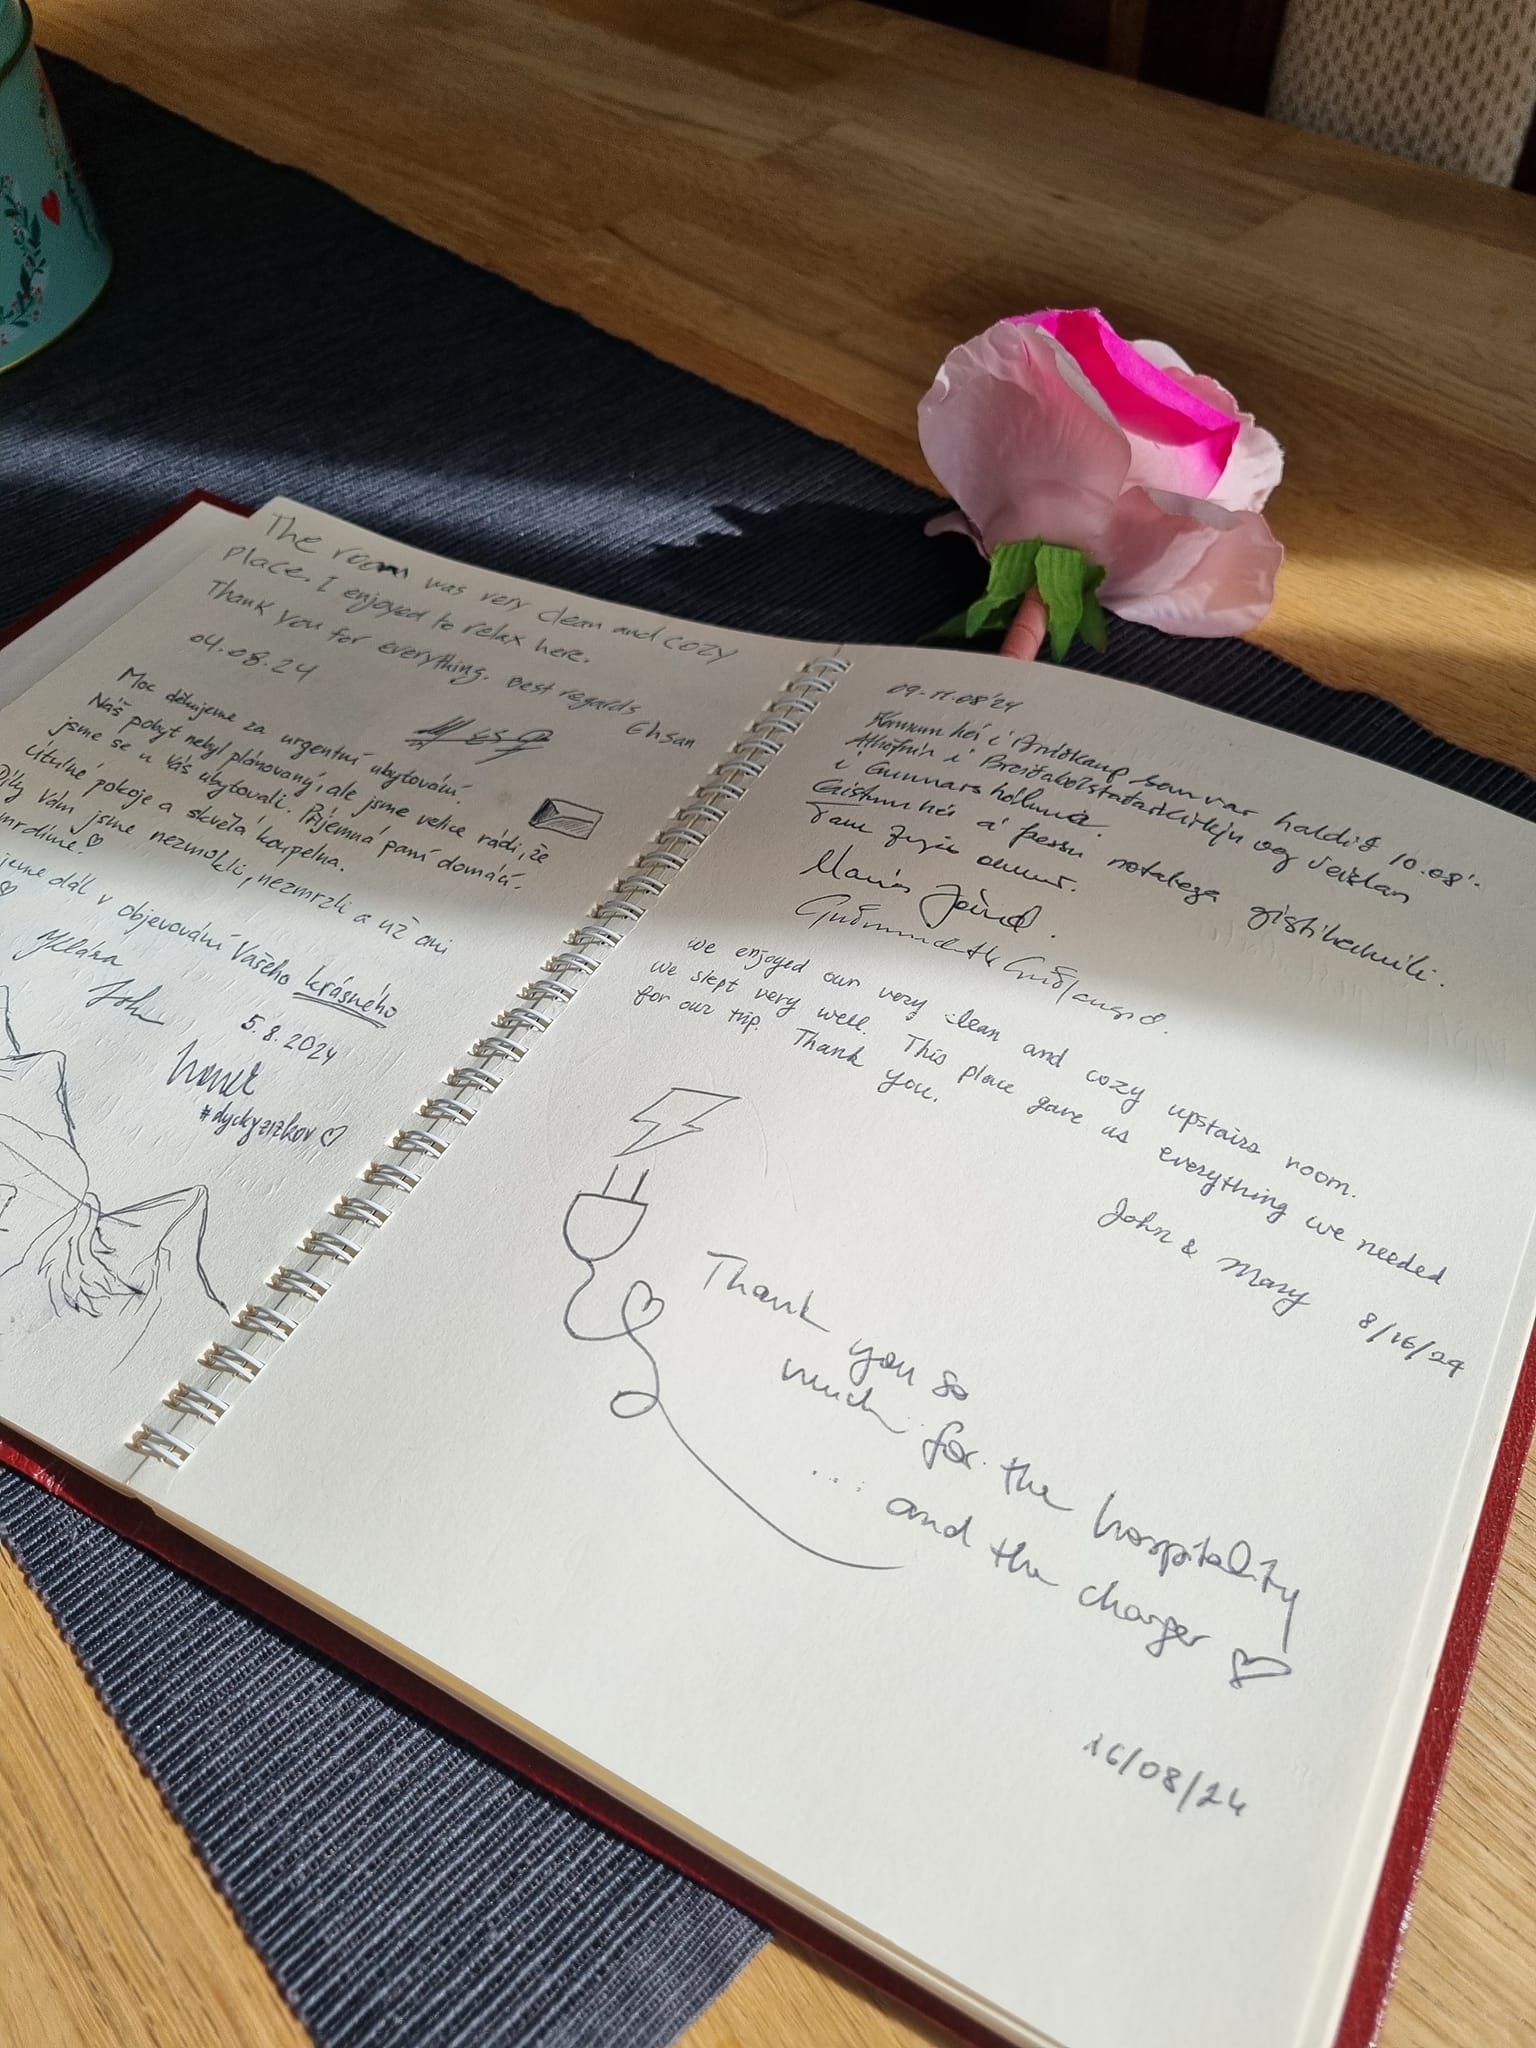 The room was very clean and cozy
place. I enjoyed to relax here.
Thank you for everything. Best regards
04.08.24
Ehsan
Moc děkujeme za urgentní ubytování.
Náš pobyt nebyl plánovaný, ale jsme velice rádi, že
jsme se u Vás ubytovali. Příjemná paní domácí.
Útulné pokoje a skvělá koupelna.
Díky Vám jsme nezmokli, nezmrzli a už ani
dál v objevování Vašeho krásného
5.8.2024
#dyckyzizkov
09-11.08'24
Komum hér í som var haldið 10.08'.
í Breiðabólstaðarkirkju og veislan
í Gunnarshólma.
Gistum hér á þessu notalega gistiheimili.
we enjoyed our very clean and cozy upstairs room.
we slept very well. This place gave us everything we needed
for our trip. Thank you.
John & Mary 8/16/24
Thank
you so
much for the hospitality
... and the charger
16/08/24